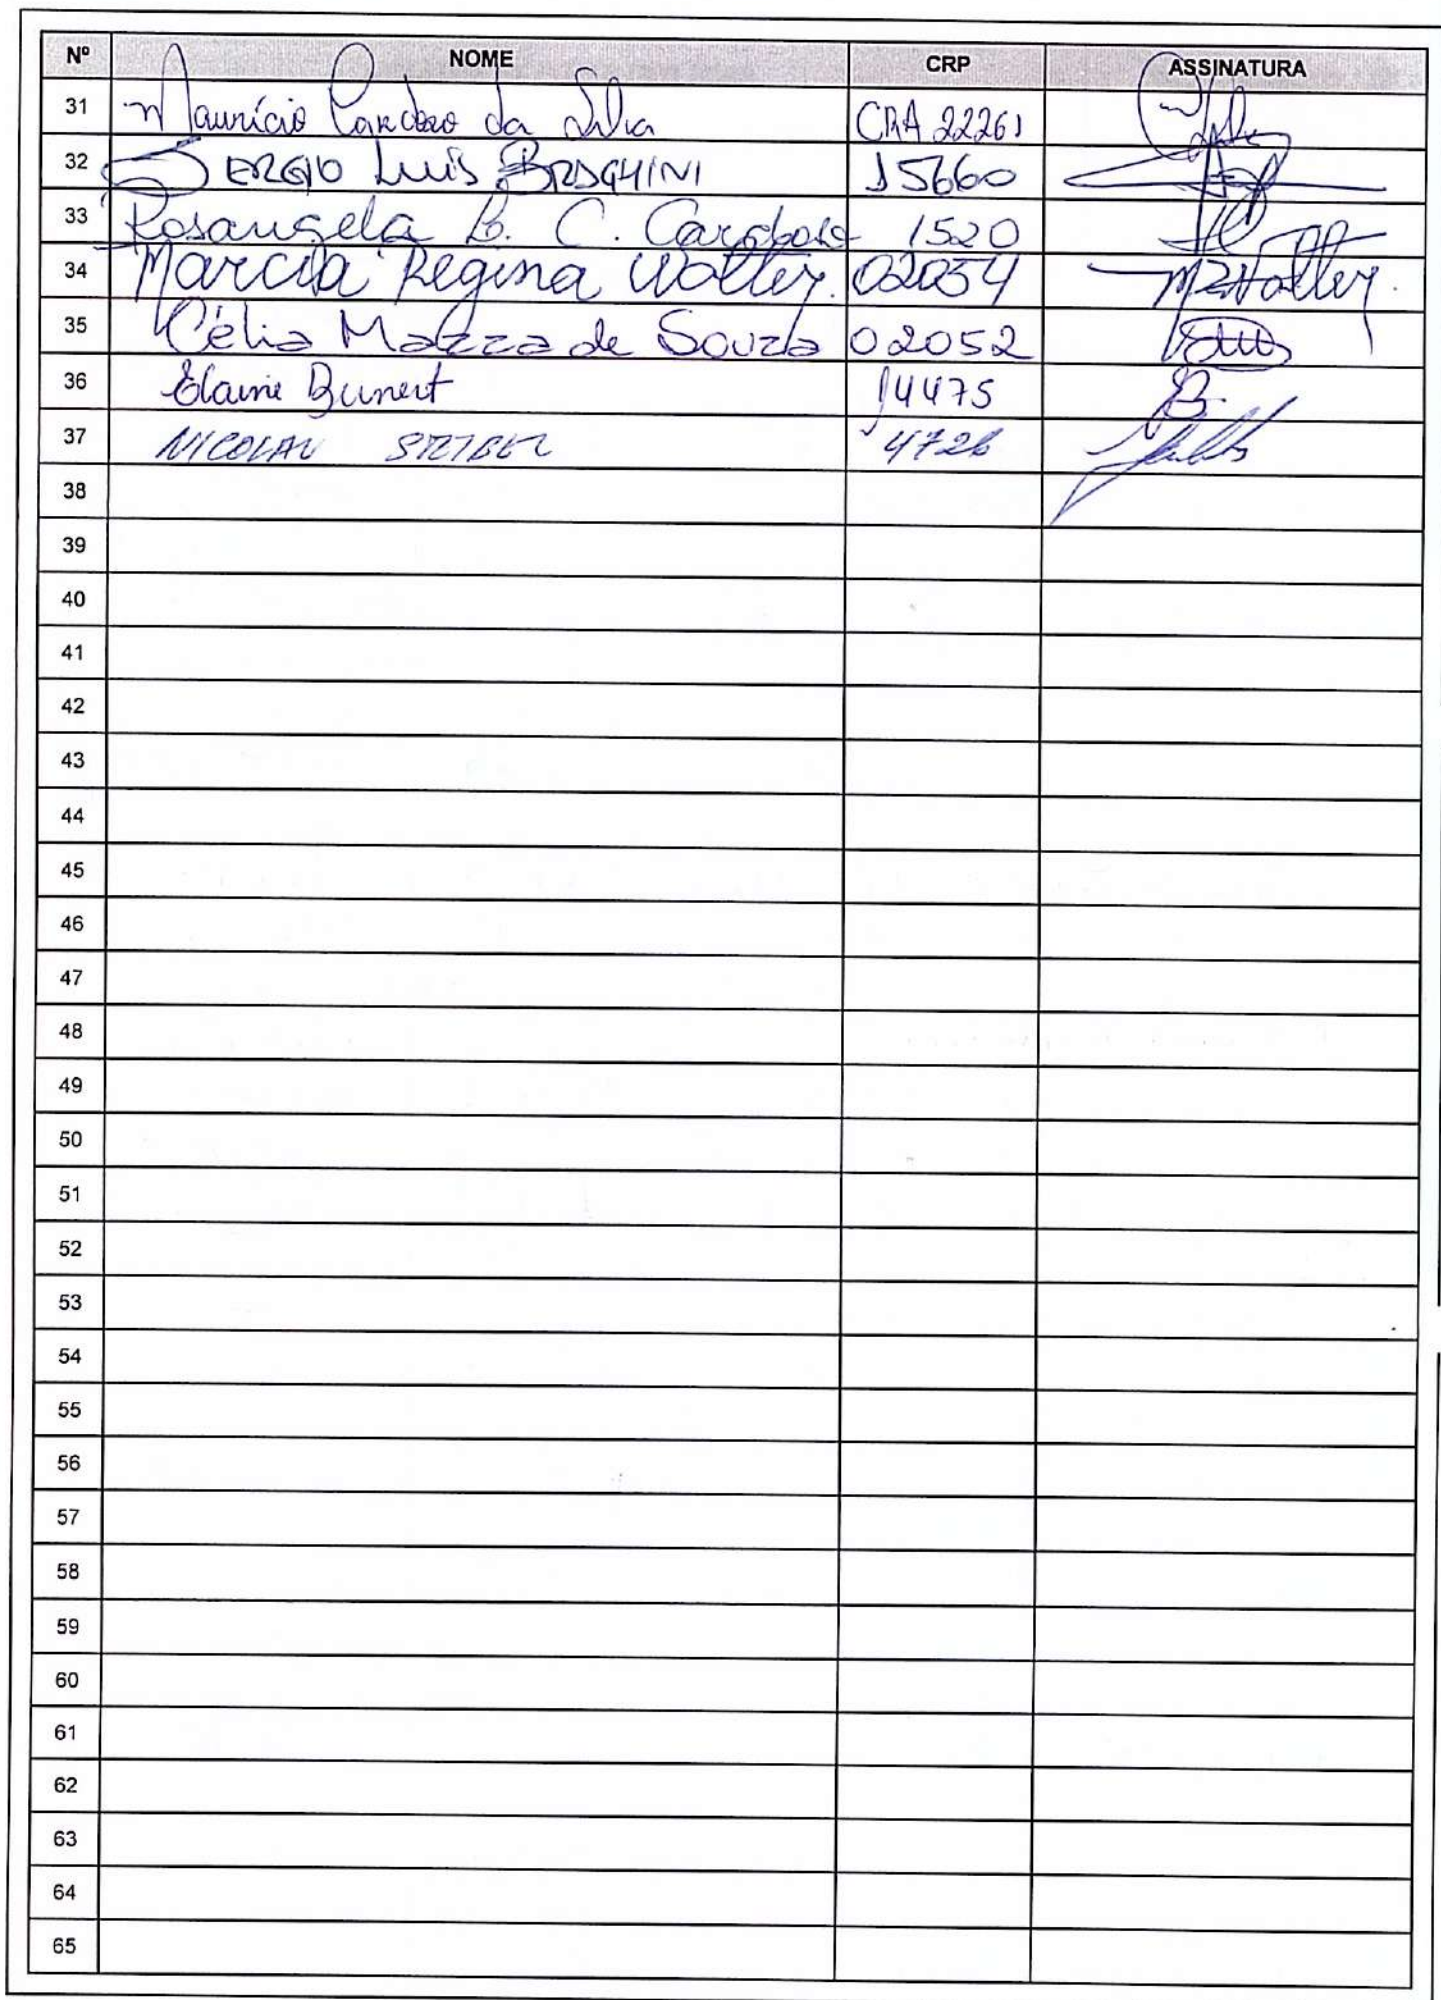 Nº NOME CRP ASSINATURA
31 Maurício Cardoso da Silva CRA 22261
32 SERGIO LUIS BRAGHINI 15660
33 Rosangela B. C. Cardoso 1520
34 Marcia Regina Walter 02054 MRWalter
35 Célia Mazza de Souza 02052
36 Elaine Bunert 14475
37 NICOLAU 4726
38
39
40
41
42
43
44
45
46
47
48
49
50
51
52
53
54
55
56
57
58
59
60
61
62
63
64
65